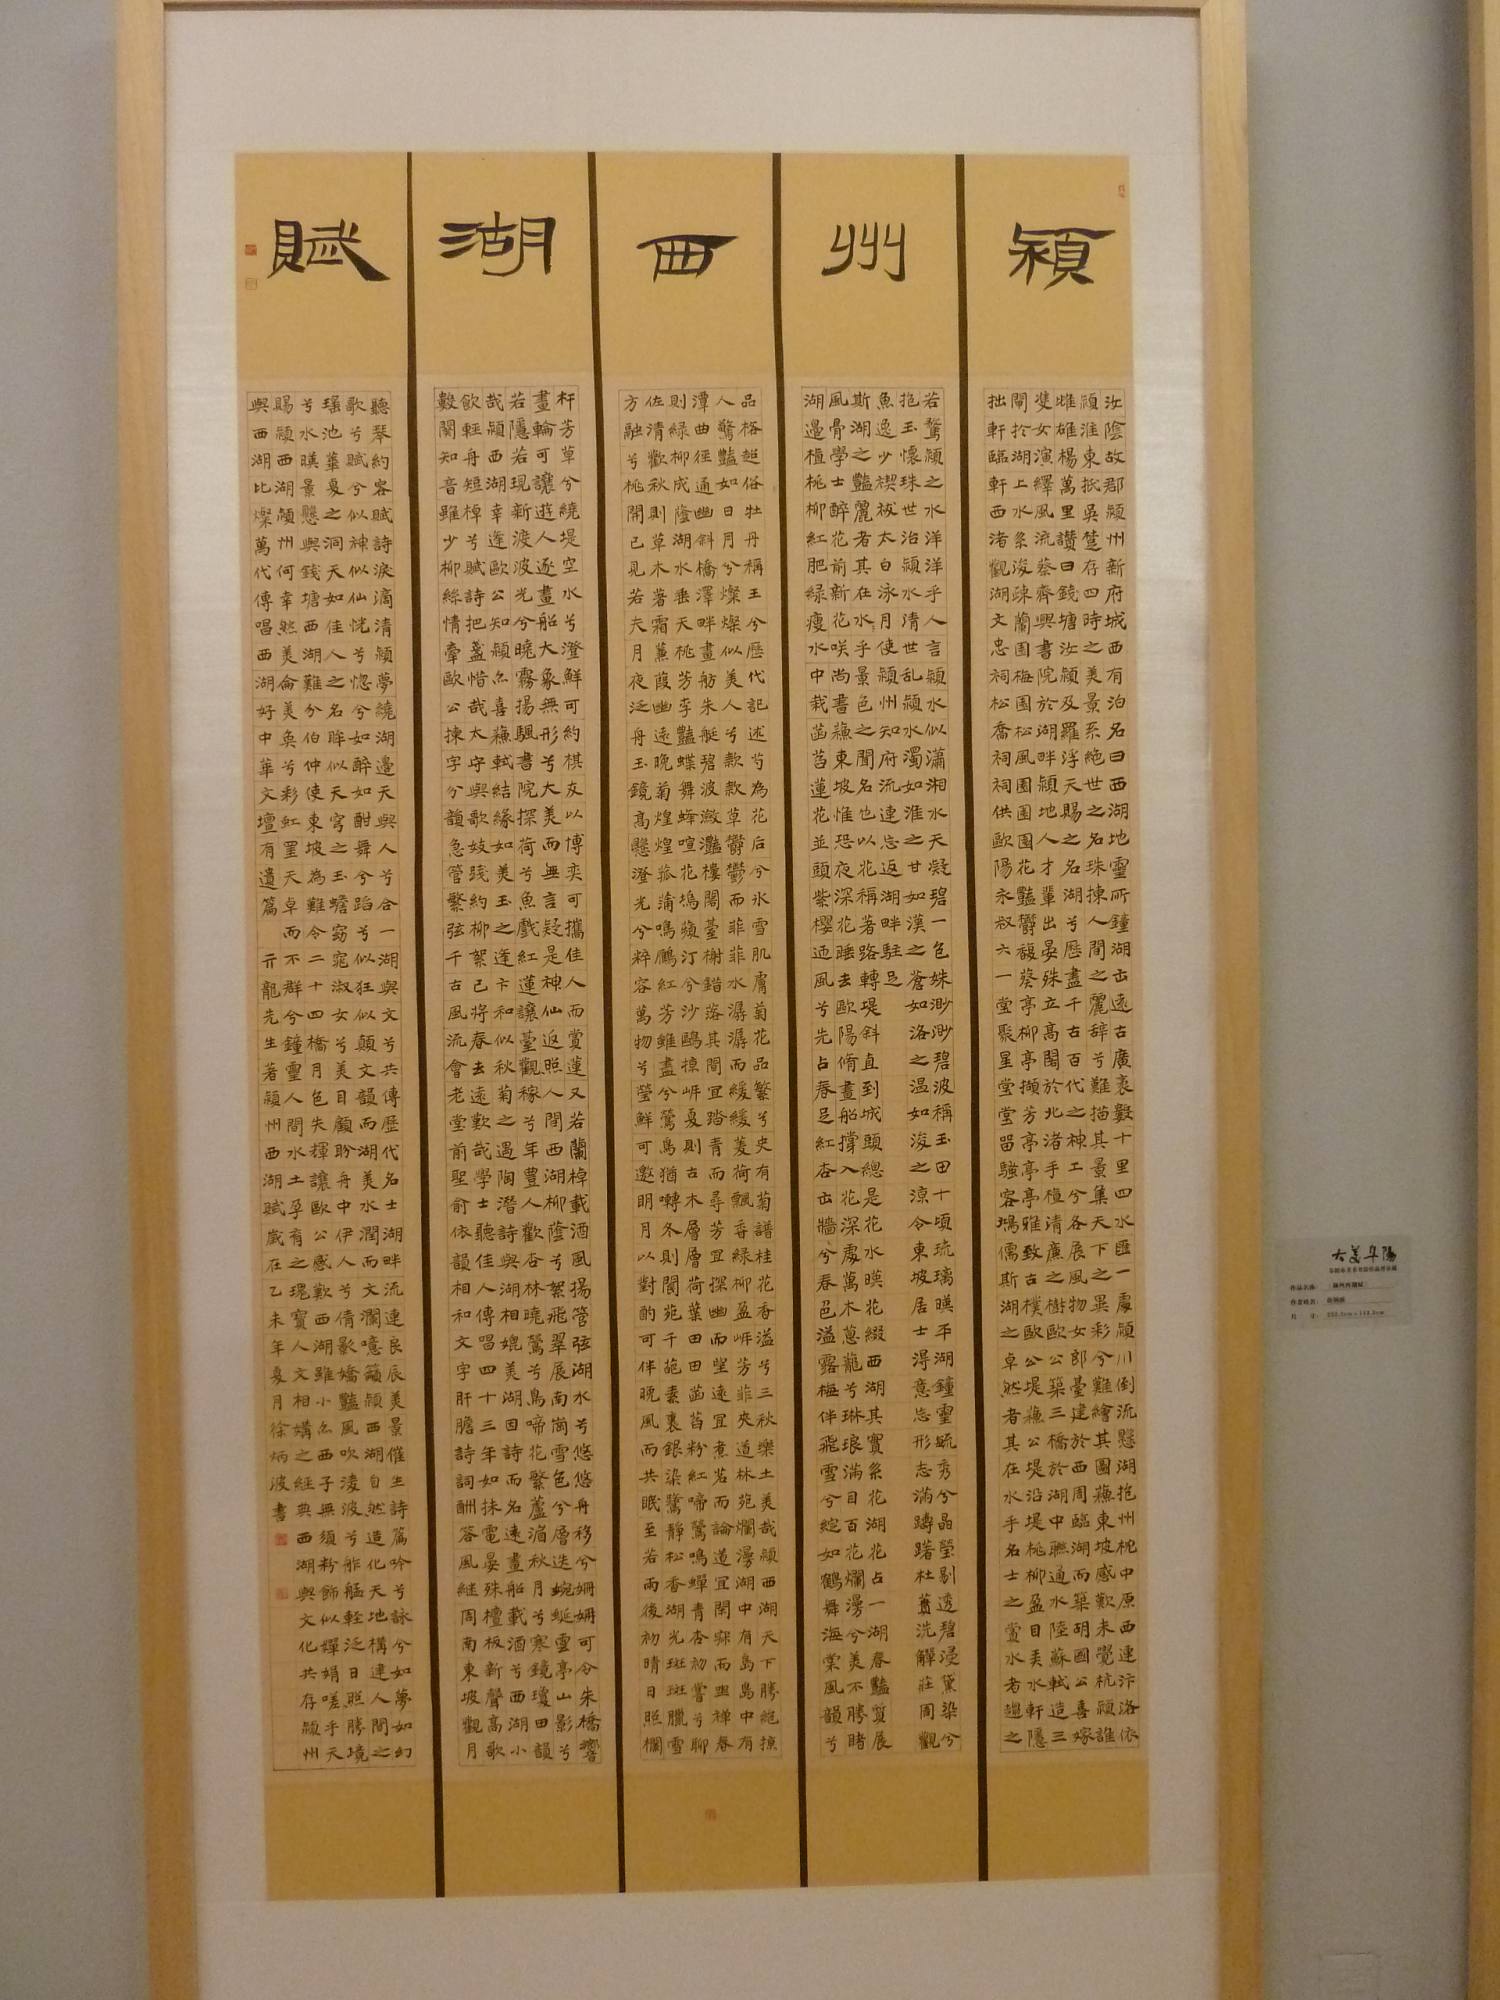 颍州西湖賦
汝陰故郡颍州新府城西有泊名曰西湖地靈所鐘湖出遠古廣袤數十里四水匯一處颍川倒流懸湖抱州枕中原西連汴洛依
颍淮東扺吳楚存四時之美景系絶世之名珠揀人間之麗辞兮難描其景集天下之異彩兮難繪其圖蘓東坡感歎未覺杭颍誰
雌雄楊萬里讚曰錢塘汝颍及羅浮天賜之名湖兮歷盡千古百代之
雙女演繹風流蔡齊興書院於湖畔颍地人才輩出晏殊立高閣於北渚手植清廉之樹歐公築三橋於湖中聯通水陸蘇軾造三
閘扵湖上水系浚疎蘭園梅園松風園
拙軒臨軒西渚觀湖文忠祠松喬祠祠供歐陽永叔六一堂聚星堂堂留騷客鴻儒斯湖之卓然者其在水乎名士之賞水者趙之
若鶩颍之水洋洋乎人言颍水似瀟湘水天凝碧一色姝渺渺碧波稱玉田十頃琉璃暎平湖鐘靈毓秀兮晶瑩剔透碧浸黛染兮
抱玉懷珠世治颍水清世乱颍水濁如淮之甘如漢之蒼如洛之温如浚之涼令東坡居士得意忘形志滿躊躇杜蕡洗觶莊周觀
魚逸少禊祓太白泳月使颍州知府流連忘返湖畔駐足
斯湖之豔麗者其在水乎景色之聞名也以花稱著路轉堤斜直到城頭總是花水暎花綴西湖其實系花湖花占一湖春豔質展
風骨學士醉花前新花咲尚書蘓東坡惟恐夜深花睡去歐陽脩畫船撐入花深處萬木蔥龍兮琳琅滿目百花爛漫兮美不勝睹
湖邊植桃柳紅肥綠瘦水中栽菡萏蓮花並頭紫櫻迊風兮先占春足紅杏出牆兮春邑溢露梅伴飛雪兮綻如鶴舞海棠風韻兮
品格超俗牡丹稱王兮歷代記述芍為花后兮氷雪肌膚菊花品繁兮史有菊譜桂花香溢兮三秋樂土美哉颍西湖天下勝絕掠
人驚豔如日月兮燦燦似美人兮款款草欝鬱而菲菲水潺潺而緩緩菱荷飄香綠柳盈岍芳菲夾道林苑爛漫湖中有島島中有
潭曲徑通幽斜橋澤畔畫舫朱艇碧波瀲灩樓閣臺榭錯落其間宜踏青而尋芳宜探幽而望遠宜煮茗而論道宜閑寐而幽禅春
則綠柳成蔭湖水垂天桃芳李豔蝶舞蜂喧花塢蘋汀兮沙鷗掠岍夏則古木層層荷葉田田菡萏粉紅啼鶯鳴蟬青杏初嘗兮聊
佐清歡秋則草木著霜蒹葭幽遠晚菊煌煌菰蒲鳴鵰紅芳雖盡兮鶯鳥猶囀冬則閬苑千葩素裹銀染鷺靜松香湖光斑斑臘雪
方融兮桃開已見若夫月夜泛舟玉鏡高懸澄光兮粹容萬物兮瑩鮮可邀明月以對酌可伴晚風而共眠至若雨後初晴日照欄
杆芳草兮繞堤空水兮澄鮮可約棋友以博奕可攜佳人而賞蓮又若蘭棹載酒風揚管弦湖水兮悠悠舟移兮姍姍可令朱橋響
畫輪可讓遊人逐畫船大象無形兮大美而無言疑是神仙返照人間西湖柳蔭兮絮飛翠展南崗雪色兮層迭蜿蜒雲亭山影兮
若隱若現新渡波光兮曉霧揚颿書院探荷兮魚戲紅蓮讓臺觀稼兮年豊人歡杏林曉鶯兮鳥啼花繁蘆湄秋月兮寒鏡瓊田韻
哉颍西湖幸逢歐公知颍尒喜蘓軾結緣如美玉之逢卞和似秋菊之遇陶潜詩與湖相媲美湖因詩而名遠畫船載酒兮西湖小
飲輕舟短棹兮賦詩把盞惜哉太守與歌妓践約柳絮已將春去遠歎哉學士聽佳人傳唱四十三年如抹電晏殊檀板新聲高歌
數闋知音雖少柳絲情牽歐公揀字分韻急管繁弦千古風流會老堂前聖俞依韻相和文字肝膽詩詞酬答風継周南東坡觀月
聽琴約客賦詩淚滴清颍夢繞湖邉天與人兮合一湖與文兮共傳歷代名士湖畔流連良辰美景催生詩篇吟兮詠兮如夢如幻
歌兮賦兮似神似仙恍兮惚兮如醉如酣舞兮蹈兮似狂似顛文韻而湖美水潤而文瀾噫籲颍西湖自然造化天地構建人間之
瑤池華夏之洞天如佳人之名眸似天穹之玉蟾窈窕淑女兮美目顧盼舟中伊人兮倩影嬌豔風吹淩波兮舴艋輕泛日照勝境
兮水暎景懸與錢塘西湖難分伯仲使東坡為難令二十四橋月色失輝讓歐公感歎西湖雖小尒西子無須粉飾似嬋娟嗟乎天
賜颍西湖颍州何幸然美侖美奐兮彩虹罣天卓而不群兮鐘靈人間水土孕有之瑰寶人文相媾之經典西湖與文化共存颍州
與西湖比燦萬代傳唱西湖好中華文壇有遺篇 亓龍先生著颍州西湖賦歲在乙未年夏月徐炳波書
大美阜陽
作品名称：《颍州西湖賦》
作者姓名：
尺 寸：